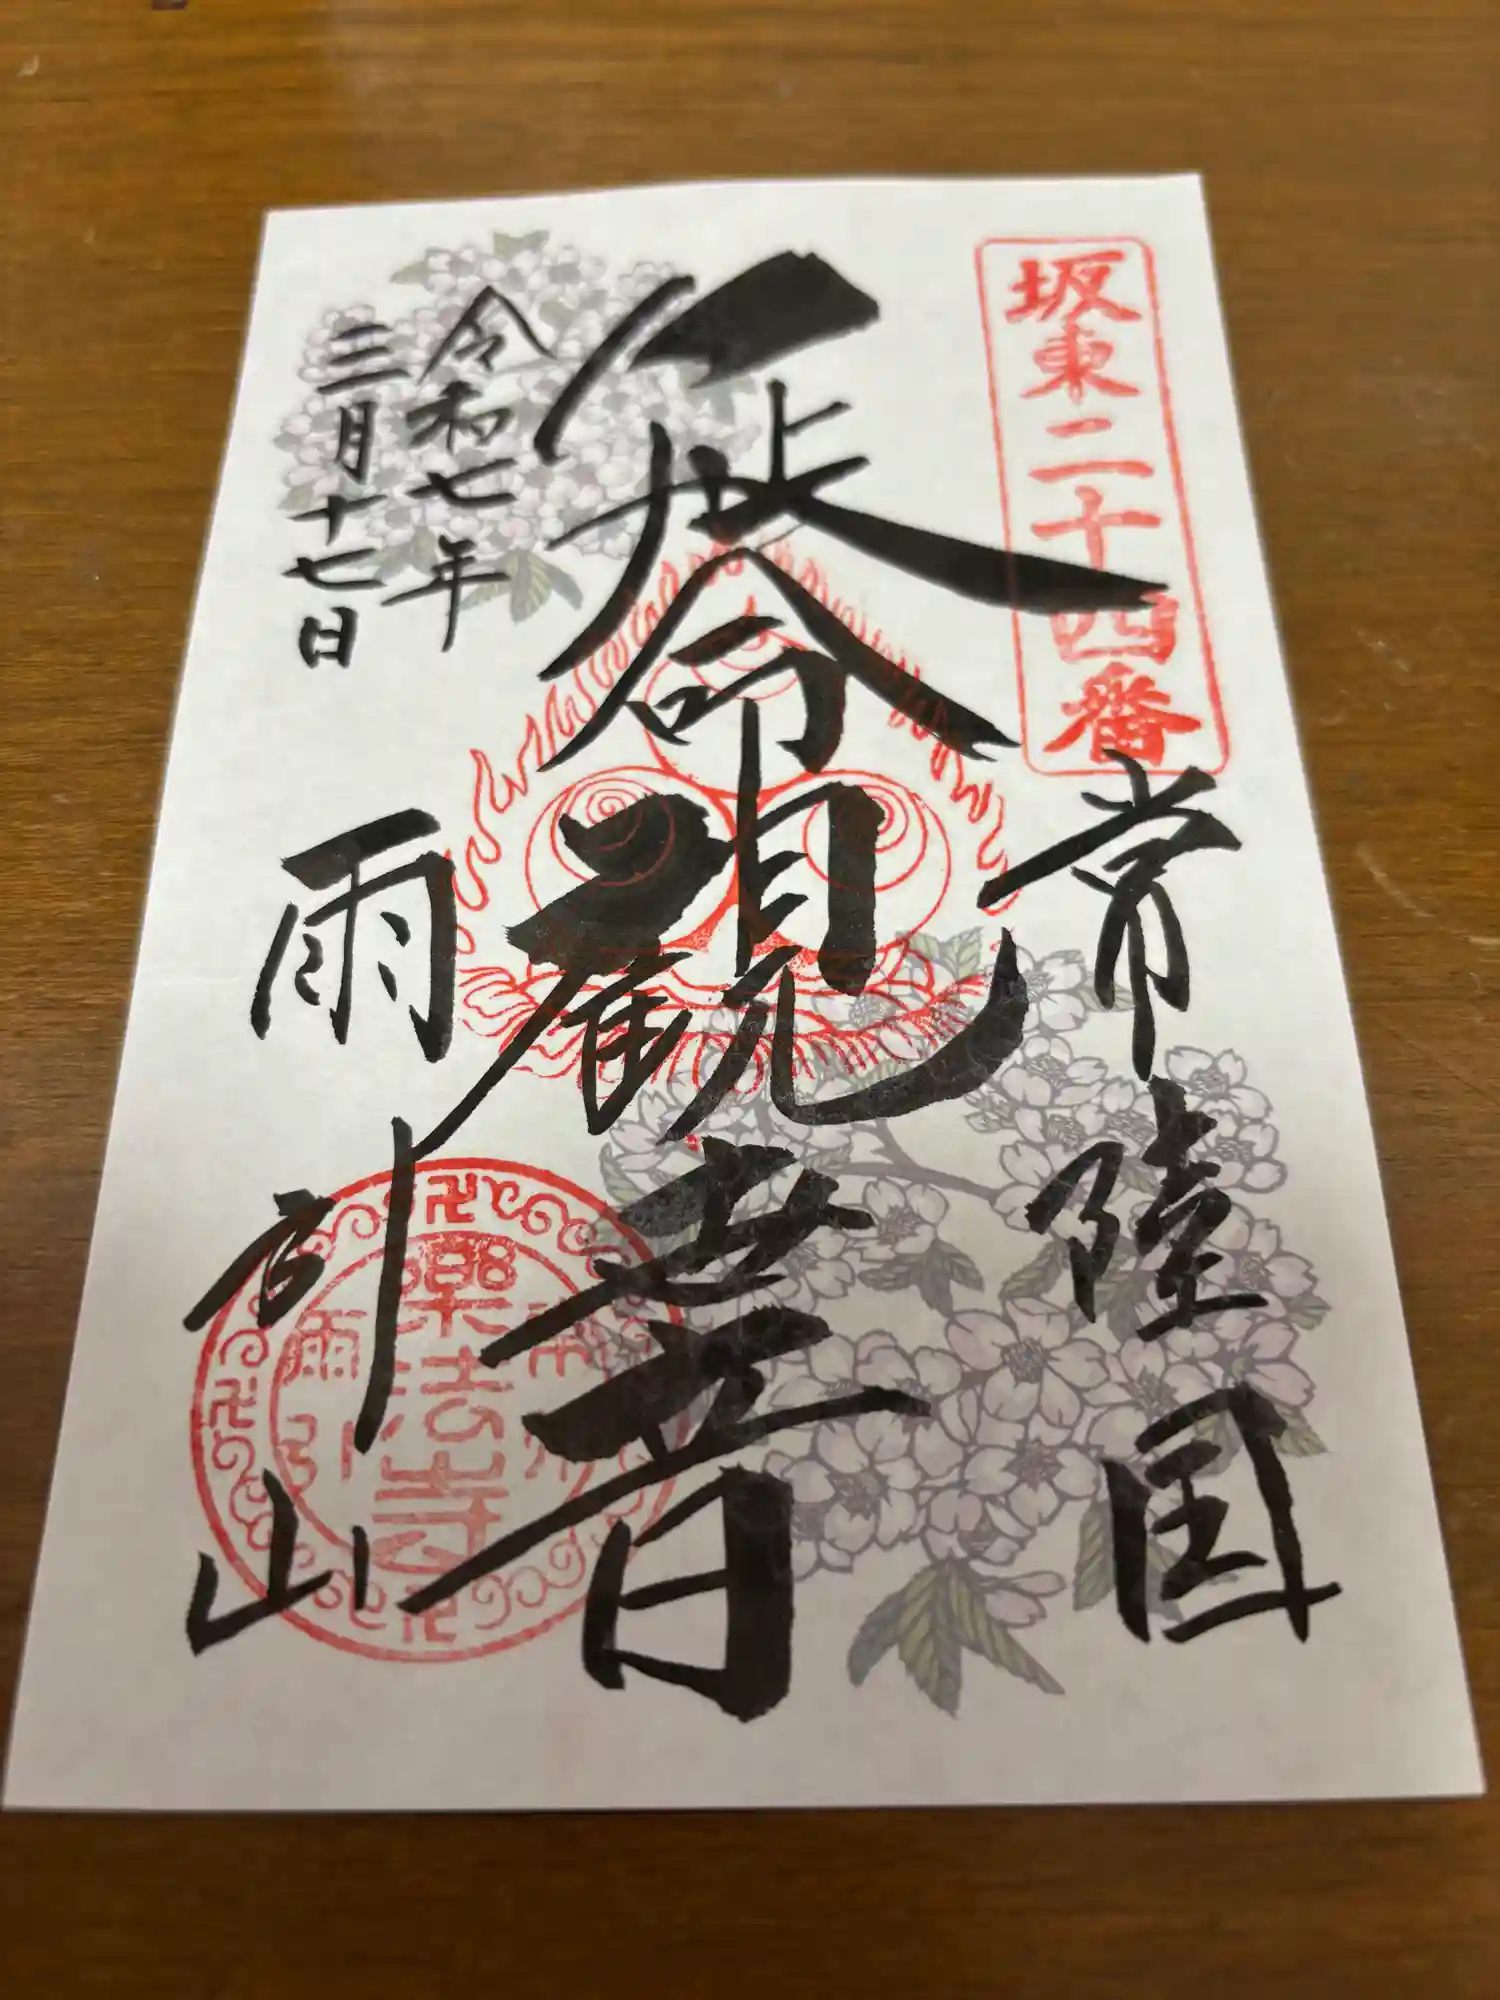 坂東二十四番
常陸国
延命観音
雨引山
令和七年
三月十七日
樂法寺
雨引